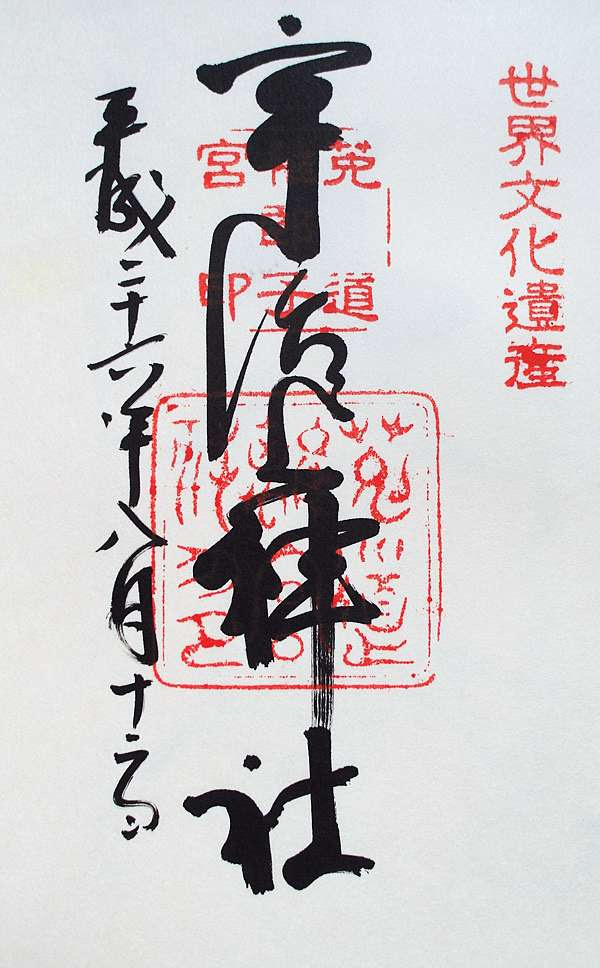 世界文化遺産
莵道
宮印
宇治上神社
平成二十六年八月十二日